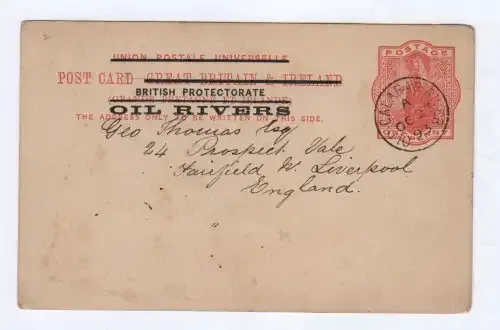 UNION POSTALE UNIVERSELLE
POSTAGE
POST CARD GREAT BRITAIN & IRELAND
BRITISH PROTECTORATE
OIL RIVERS
THE ADDRESS ONLY TO BE WRITTEN ON THIS SIDE.
CALABAR RIVER
A
Geo Thomas Esq
24 Prospect Vale
Fairfield W. Liverpool
England.
"